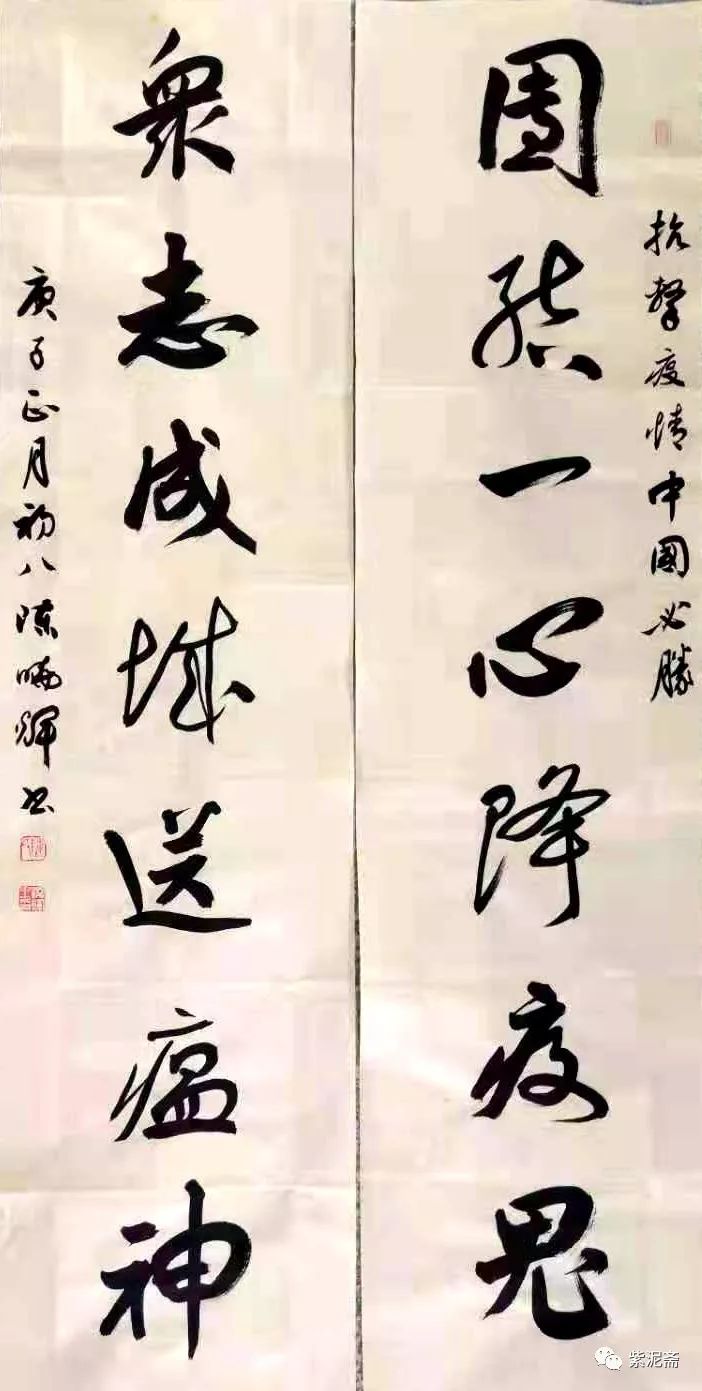 抗擊疫情中國必勝
團結一心降疫鬼
衆志成城送瘟神
庚子正月初八陳曉輝書
紫泥斋